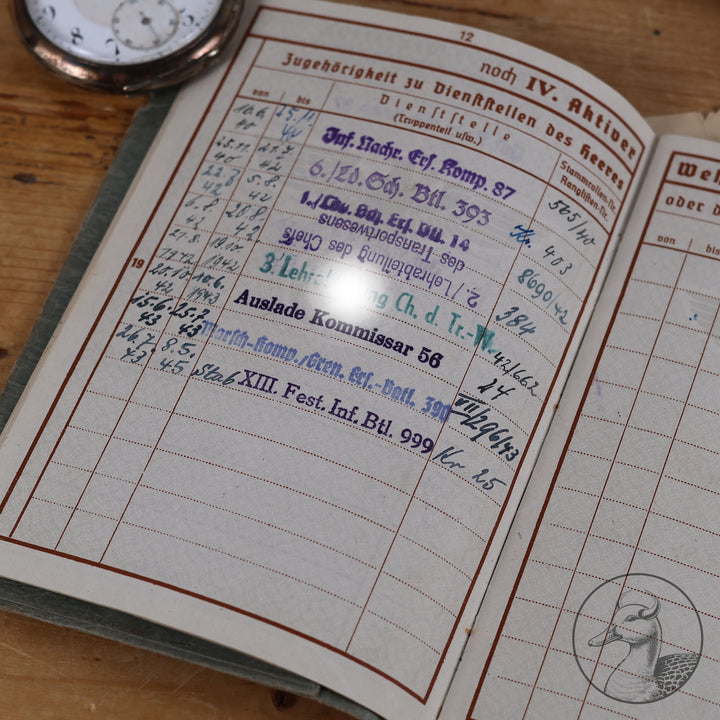 12
noch IV. Aktiver
Zugehörigkeit zu Dienststellen des Heeres
von bis Dienststelle (Truppenteil usw.) Stammrollen-Nr. Ranglisten-Nr.
10.6. 40 25.11. 40 Inf. Nachr. Ers. Komp. 87 565/40
40 42 6./Ld. Sch. Btl. 393 Nr. 403
22.8. 42 5.8. 42 8690/42
6.8. 42 20.8. 42 2./Lehrabteilung des Chefs des Transportwesens 384
21.8. 1942 3. Ch. d. Tr. 42/662
19 20.10. 42 10.6. 1943 Auslade Kommissar 56 24
15.6. 43 25.7. 43 Marsch-Komp./Gren. Ers.-Batl. 390 VII/296/43
26.7. 43 8.5. 45 Stab XIII. Fest. Inf. Btl. 999 Nr 25
Weh
oder d
von bis